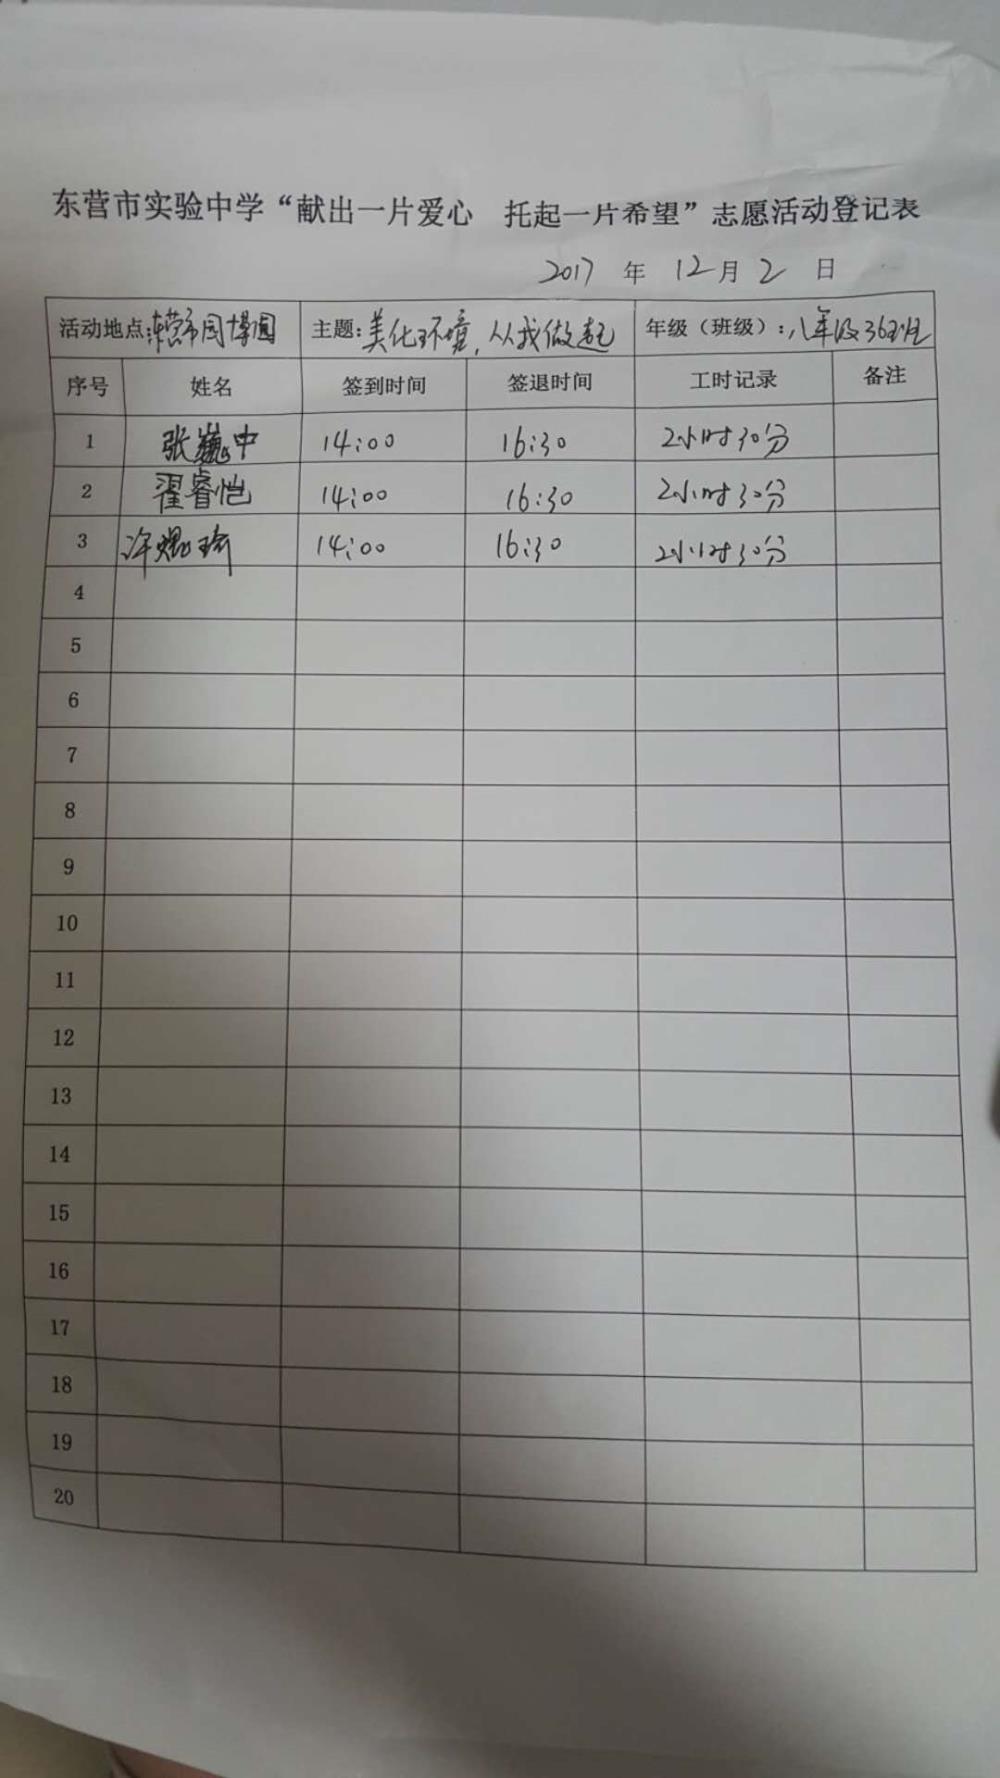 东营市实验中学“献出一片爱心 托起一片希望”志愿活动登记表
2017 年 12 月 2 日
活动地点:东营市园博园 主题:美化环境,从我做起 年级(班级):八年级36班
序号 姓名 签到时间 签退时间 工时记录 备注
1 张巍中 14:00 16:30 2小时30分
2 翟睿恺 14:00 16:30 2小时30分
3 许焜琦 14:00 16:30 2小时30分
4
5
6
7
8
9
10
11
12
13
14
15
16
17
18
19
20